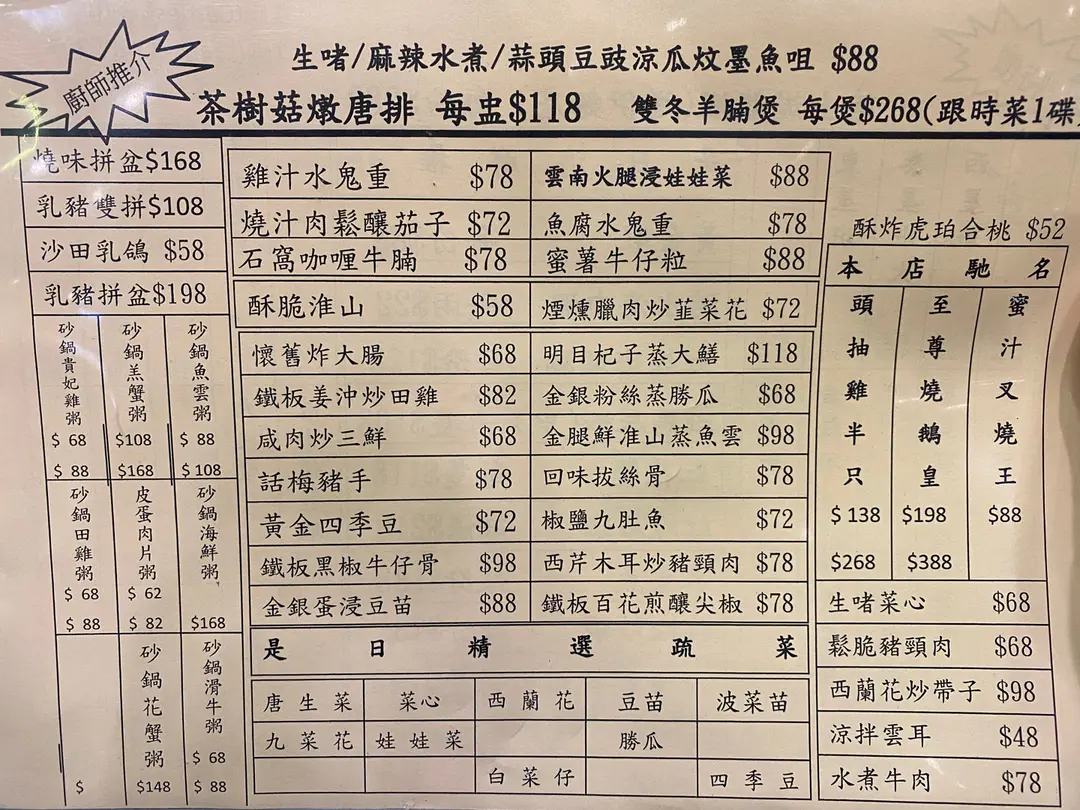 廚師推介
生啫/麻辣水煮/蒜頭豆豉涼瓜炆墨魚咀 $88
茶樹菇燉唐排 每盅$118 雙冬羊腩煲 每煲$268(跟時菜1碟)
燒味拼盆$168
乳豬雙拼$108
沙田乳鴿 $58
乳豬拼盆$198
砂鍋貴妃雞粥 $ 68 $ 88
砂鍋羔蟹粥 $108 $168
砂鍋魚雲粥 $ 88 $ 108
砂鍋田雞粥 $ 68 $ 88
皮蛋肉片粥 $ 62 $ 82
砂鍋海鮮粥 $168
$
砂鍋花蟹粥 $148
砂鍋滑牛粥 $ 68 $ 88
雞汁水鬼重 $78 雲南火腿浸娃娃菜 $88
燒汁肉鬆釀茄子 $72 魚腐水鬼重 $78
石窩咖喱牛腩 $78 蜜薯牛仔粒 $88
酥脆淮山 $58 煙燻臘肉炒韮菜花 $72
懷舊炸大腸 $68 明目杞子蒸大鱔 $118
鐵板姜沖炒田雞 $82 金銀粉絲蒸勝瓜 $68
咸肉炒三鮮 $68 金腿鮮准山蒸魚雲 $98
話梅豬手 $78 回味拔絲骨 $78
黃金四季豆 $72 椒鹽九肚魚 $72
鐵板黑椒牛仔骨 $98 西芹木耳炒豬頸肉 $78
金銀蛋浸豆苗 $88 鐵板百花煎釀尖椒 $78
是日精選疏菜
唐生菜 菜心 西蘭花 豆苗 波菜苗
九菜花 娃娃菜 勝瓜
白菜仔 四季豆
酥炸虎珀合桃 $52
本店馳名
頭抽雞半只 $ 138 $268
至尊燒鵝皇 $198 $388
蜜汁叉燒王 $88
生啫菜心 $68
鬆脆豬頸肉 $68
西蘭花炒帶子 $98
涼拌雲耳 $48
水煮牛肉 $78